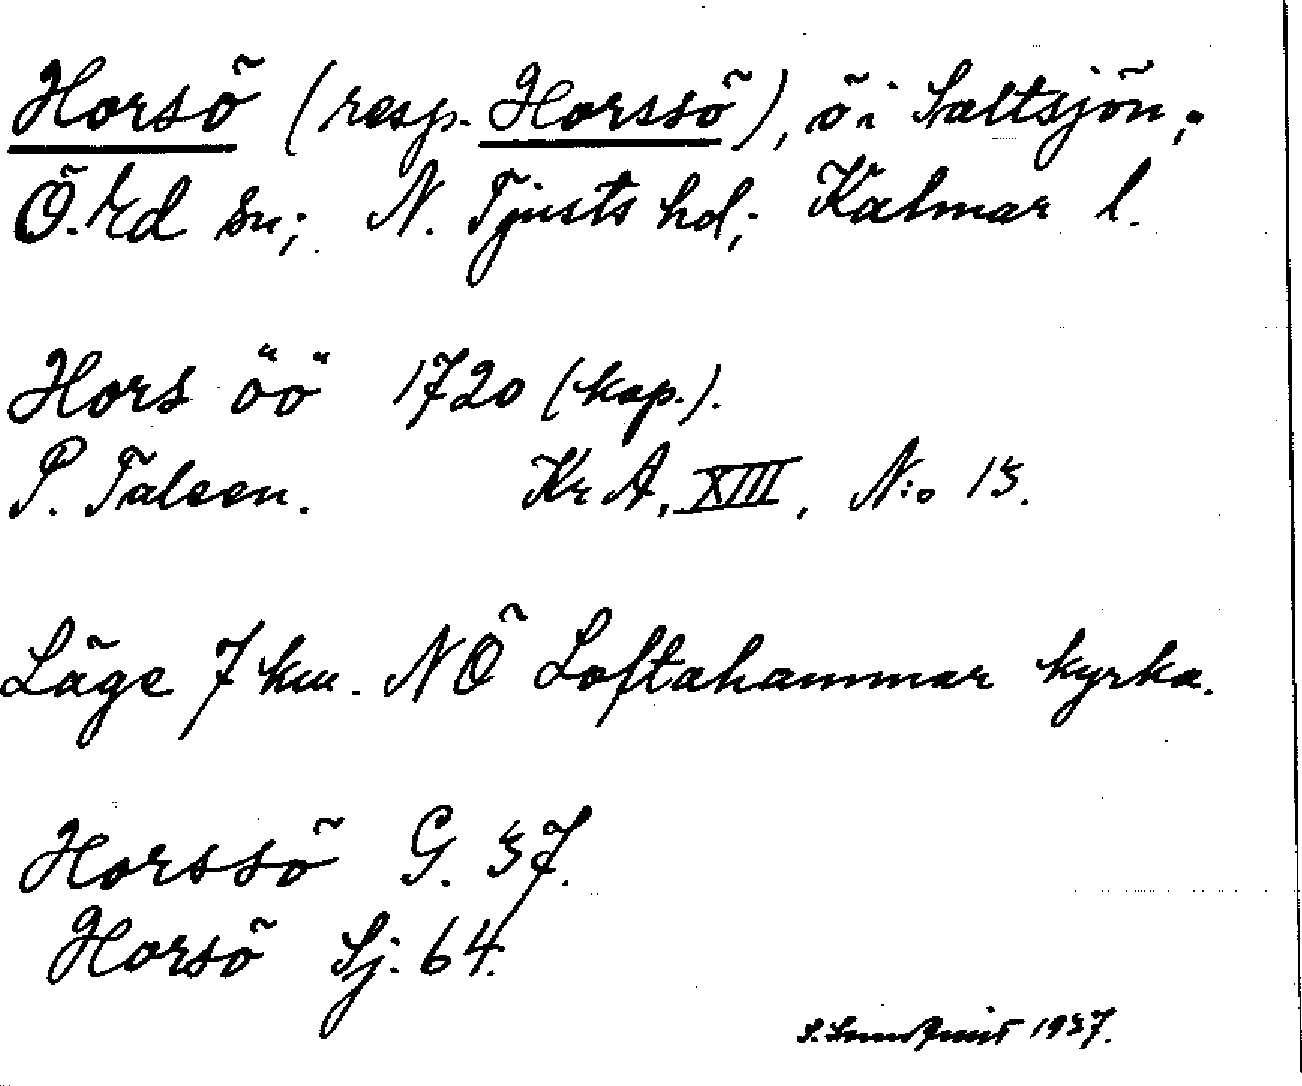 Horsö (resp. Horssö), ö i Saltsjön;
Ö. Ed sn; N. Tjusts hd; Kalmar l.
Hors öö 1720 (kop.).
P. Taleen. Kr A, XIII, N:o 15.
Läge 7 km. NÖ Loftahammar kyrka.
Horssö G. 37.
Horsö Sj. 64.
1937.